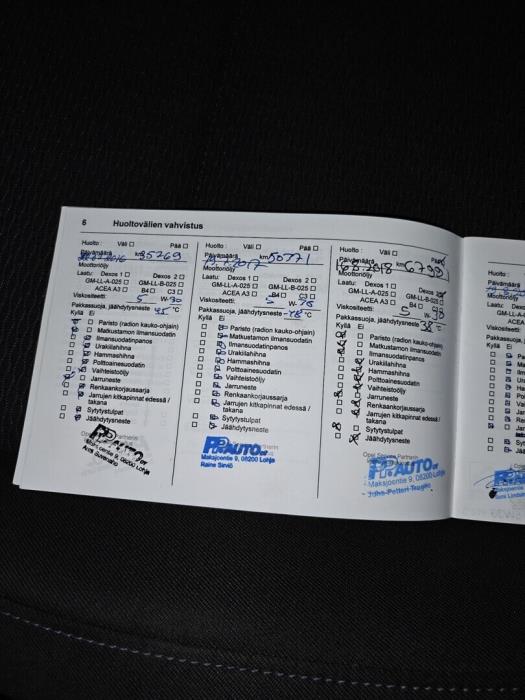 6 Huoltovälien vahvistus
Huolto: Väli Pää
Päivämäärä 2016 km 35269
Moottoriöljy
Laatu: Dexos 1 Dexos 2
GM-LL-A-025 GM-LL-B-025
ACEA A3 B4 C3
Viskositeetti: 5 W- 30
Pakkassuoja, jäähdytysneste °C
Kyllä Ei
Paristo (radion kauko-ohjain)
Matkustamon ilmansuodatin
Ilmansuodatinpanos
Urakiilahihna
Hammashihna
Polttoainesuodatin
Vaihteistoöljy
Jarruneste
Renkaankorjaussarja
Jarrujen kitkapinnat edessä /
takana
Sytytystulpat
Jäähdytysneste
PP AUTO
Maksjoentie 9, 08200 Lohja
Huolto: Väli Pää
Päivämäärä 2017 km 50771
Moottoriöljy
Laatu: Dexos 1 Dexos 2
GM-LL-A-025 GM-LL-B-025
ACEA A3 B4 C3
Viskositeetti: 5 W-
Pakkassuoja, jäähdytysneste °C
Kyllä Ei
Paristo (radion kauko-ohjain)
Matkustamon ilmansuodatin
Ilmansuodatinpanos
Urakiilahihna
Hammashihna
Polttoainesuodatin
Vaihteistoöljy
Jarruneste
Renkaankorjaussarja
Jarrujen kitkapinnat edessä /
takana
Sytytystulpat
Jäähdytysneste
PP AUTO
Maksjoentie 9, 08200 Lohja
Raine Sirviö
Huolto: Väli Pää
Päivämäärä 2018 km 67991
Moottoriöljy
Laatu: Dexos 1 Dexos
GM-LL-A-025 GM-LL-B-025
ACEA A3 B4
Viskositeetti: 5 W-
Pakkassuoja, jäähdytysneste 38 °C
Kyllä Ei
Paristo (radion kauko-ohjain)
Matkustamon ilmansuodatin
Ilmansuodatinpanos
Urakiilahihna
Hammashihna
Polttoainesuodatin
Vaihteistoöljy
Jarruneste
Renkaankorjaussarja
Jarrujen kitkapinnat edessä /
takana
Sytytystulpat
Jäähdytysneste
PP AUTO
Maksjoentie 9, 08200 Lohja
Juha-Petteri
Huolto
Päivämäärä
Moottoriöljy
Laatu:
Viskositeetti
Pakkassuoja,
Kyllä Ei